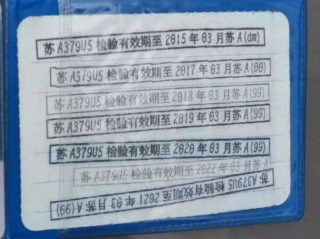 苏A379U5检验有效期至2015年03月苏A(dm)
苏A379U5检验有效期至2017年03月苏A(00)
苏A379U5检验有效期至2018年03月苏A(99)
苏A379U5检验有效期至2019年03月苏A(99)
苏A379U5检验有效期至2020年03月苏A(99)
苏A379U5检验有效期至2022年03月苏A
苏A379U5检验有效期至2021年03月苏A(99)